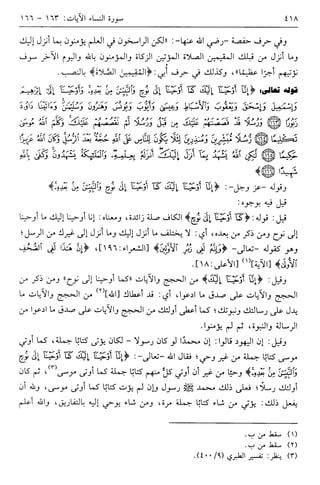 ٤١٨
سورة النساء الآيات: ١٦٣ - ١٦٦
وفي حرف حفصة - رضي الله عنها -: «لكن الراسخون في العلم يؤمنون بما أنزل إليك
وما أنزل من قبلك المقيمين الصلاة المؤتين الزكاة والمؤمنون بالله واليوم الآخر سوف
نؤتيهم أجرًا عظيمًا»، وكذلك في حرف أبي: ﴿المُقِيمِينَ الصَّلَاةَ﴾ بالنصب.
قوله تعالى: ﴿إِنَّا أَوْحَيْنَا إِلَيْكَ كَمَا أَوْحَيْنَا إِلَى نُوحٍ وَالنَّبِيِّينَ مِنْ بَعْدِهِ وَأَوْحَيْنَا إِلَى إِبْرَاهِيمَ
وَإِسْمَاعِيلَ وَإِسْحَاقَ وَيَعْقُوبَ وَالْأَسْبَاطِ وَعِيسَى وَأَيُّوبَ وَيُونُسَ وَهَارُونَ وَسُلَيْمَانَ وَآتَيْنَا دَاوُودَ
زَبُورًا ۝ وَرُسُلًا قَدْ قَصَصْنَاهُمْ عَلَيْكَ مِنْ قَبْلُ وَرُسُلًا لَمْ نَقْصُصْهُمْ عَلَيْكَ وَكَلَّمَ اللَّهُ مُوسَى
تَكْلِيمًا ۝ رُسُلًا مُبَشِّرِينَ وَمُنْذِرِينَ لِئَلَّا يَكُونَ لِلنَّاسِ عَلَى اللَّهِ حُجَّةٌ بَعْدَ الرُّسُلِ وَكَانَ اللَّهُ عَزِيزًا
حَكِيمًا ۝ لَكِنِ اللَّهُ يَشْهَدُ بِمَا أَنْزَلَ إِلَيْكَ أَنْزَلَهُ بِعِلْمِهِ وَالْمَلَائِكَةُ يَشْهَدُونَ وَكَفَى بِاللَّهِ
شَهِيدًا ۝﴾
وقوله - عز وجل -: ﴿إِنَّا أَوْحَيْنَا إِلَيْكَ كَمَا أَوْحَيْنَا إِلَى نُوحٍ وَالنَّبِيِّينَ مِنْ بَعْدِهِ﴾
قيل فيه بوجوه:
قيل: قوله: ﴿كَمَا أَوْحَيْنَا إِلَى نُوحٍ﴾ الكاف صلة زائدة، ومعناه: إنا أوحينا إليك ما أوحينا
إلى نوح ومن ذكر من بعده، أي: لا يختلف ما أنزل إليك وما أنزل إلى غيرك من الرسل؛
وهو كقوله - تعالى - ﴿وَإِنَّهُ لَفِي زُبُرِ الْأَوَّلِينَ﴾ [الشعراء: ١٩٦]، ﴿إِنَّ هَذَا لَفِي الصُّحُفِ
الْأُولَى﴾ [الآية]<sup>(١)</sup> [الأعلى: ١٨].
وقيل: ﴿إِنَّا أَوْحَيْنَا إِلَيْكَ﴾ من الحجج والآيات «كما أوحينا إلى نوح» ومن ذكر من
الحجج والآيات على صدق ما ادعوا، أي: قد أعطاك [الله]<sup>(٢)</sup> من الحجج والآيات ما
يدل على رسالتك ونبوتك؛ كما أعطى أولئك من الحجج والآيات على صدق ما ادعوا من
الرسالة والنبوة، ثم لم يؤمنوا.
وقيل: إن اليهود قالوا: إن محمدًا لو كان رسولا - لكان يؤتى كتابًا جملة، كما أوتي
موسى كتابًا جملة من غير وحي؛ فقال الله - تعالى -: ﴿إِنَّا أَوْحَيْنَا إِلَيْكَ كَمَا أَوْحَيْنَا إِلَى نُوحٍ
وَالنَّبِيِّينَ مِنْ بَعْدِهِ﴾ وحيًا من غير أن أوتي كلٌّ منهم كتابًا جملة كما أوتى موسى<sup>(٣)</sup>، ثم كان
أولئك رسلًا؛ فعلى ذلك محمد ﷺ رسول وإن لم يؤت كتابًا كما أوتى موسى، ولله أن
يفعل ذلك: يؤتي من شاء كتابًا جملة مرة، ومن شاء يوحي إليه بالتفاريق، والله أعلم
(١) سقط من ب.
(٢) سقط من ب.
(٣) ينظر: تفسير الطبري (٤٠٠/٩).